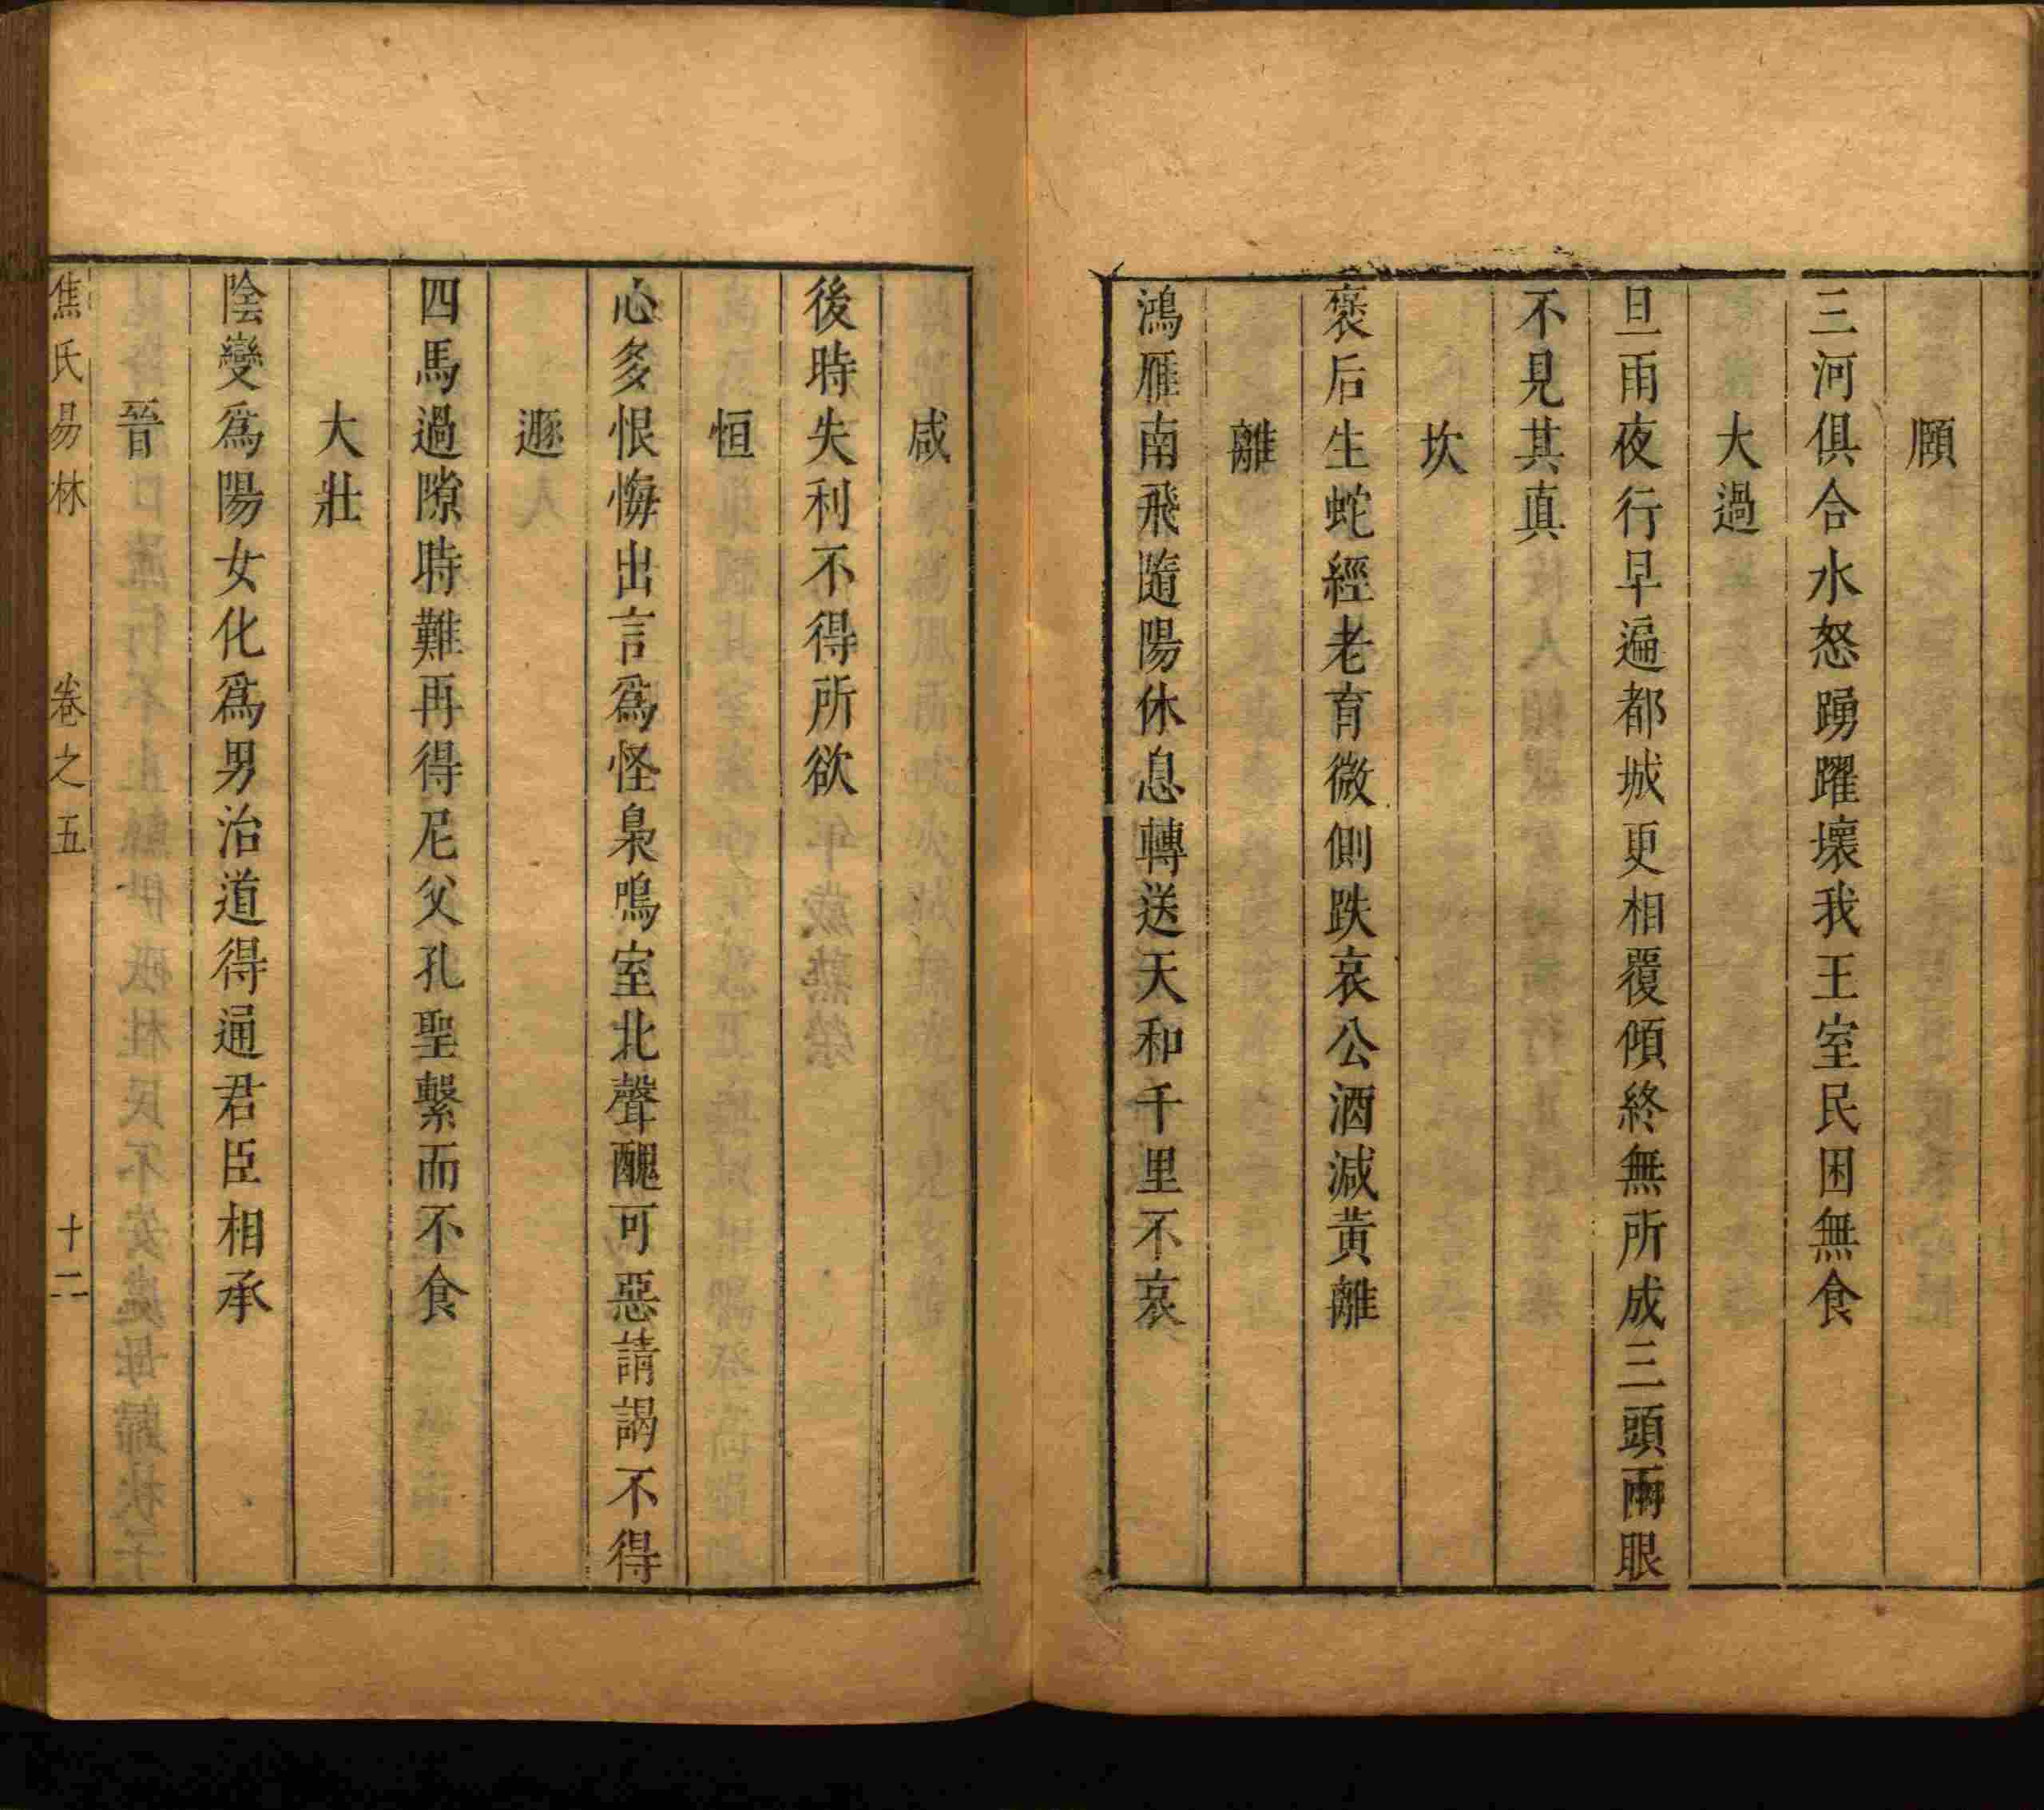 頤
三河俱合水怒踴躍壞我王室民困無食
大過
旦雨夜行早遍都城更相覆傾終無所成三頭兩眼
不見其真
坎
褒后生蛇經老育微側跌哀公酒減黃離
離
鴻雁南飛隨陽休息轉送天和千里不哀
咸
後時失利不得所欲
恒
心多恨悔出言爲怪梟鳴室北聲醜可惡請謁不得
遯
四馬過隙時難再得尼父孔聖繫而不食
大壯
陰變爲陽女化爲男治道得通君臣相承
晉
焦氏易林 卷之五 十二